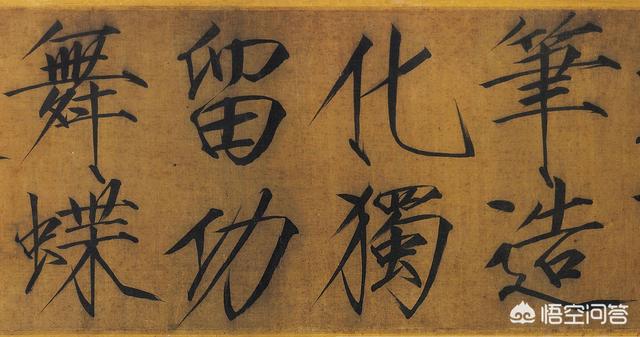 筆造
化獨
留功
舞蝶
悟空问答